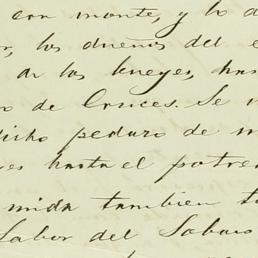 con monte, y lo d
r, los dueños del e
de los bueyes, has
o de Cruces. Se
dicho pedazo de m
es hasta el potre
mida tambien
Labor del Sabano